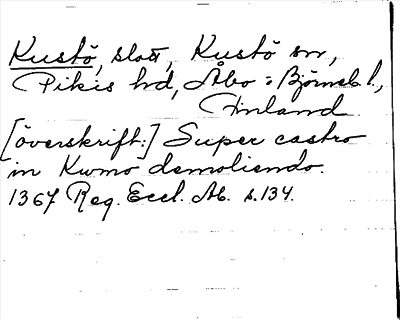 Kustö, slott, Kustö sn,
Pikis hd, Åbo o Björneb. l.,
Finland.
[överskrift:] Super castro
in Kumo demoliendo.
1367 Reg. Eccl. Ab. s. 134.